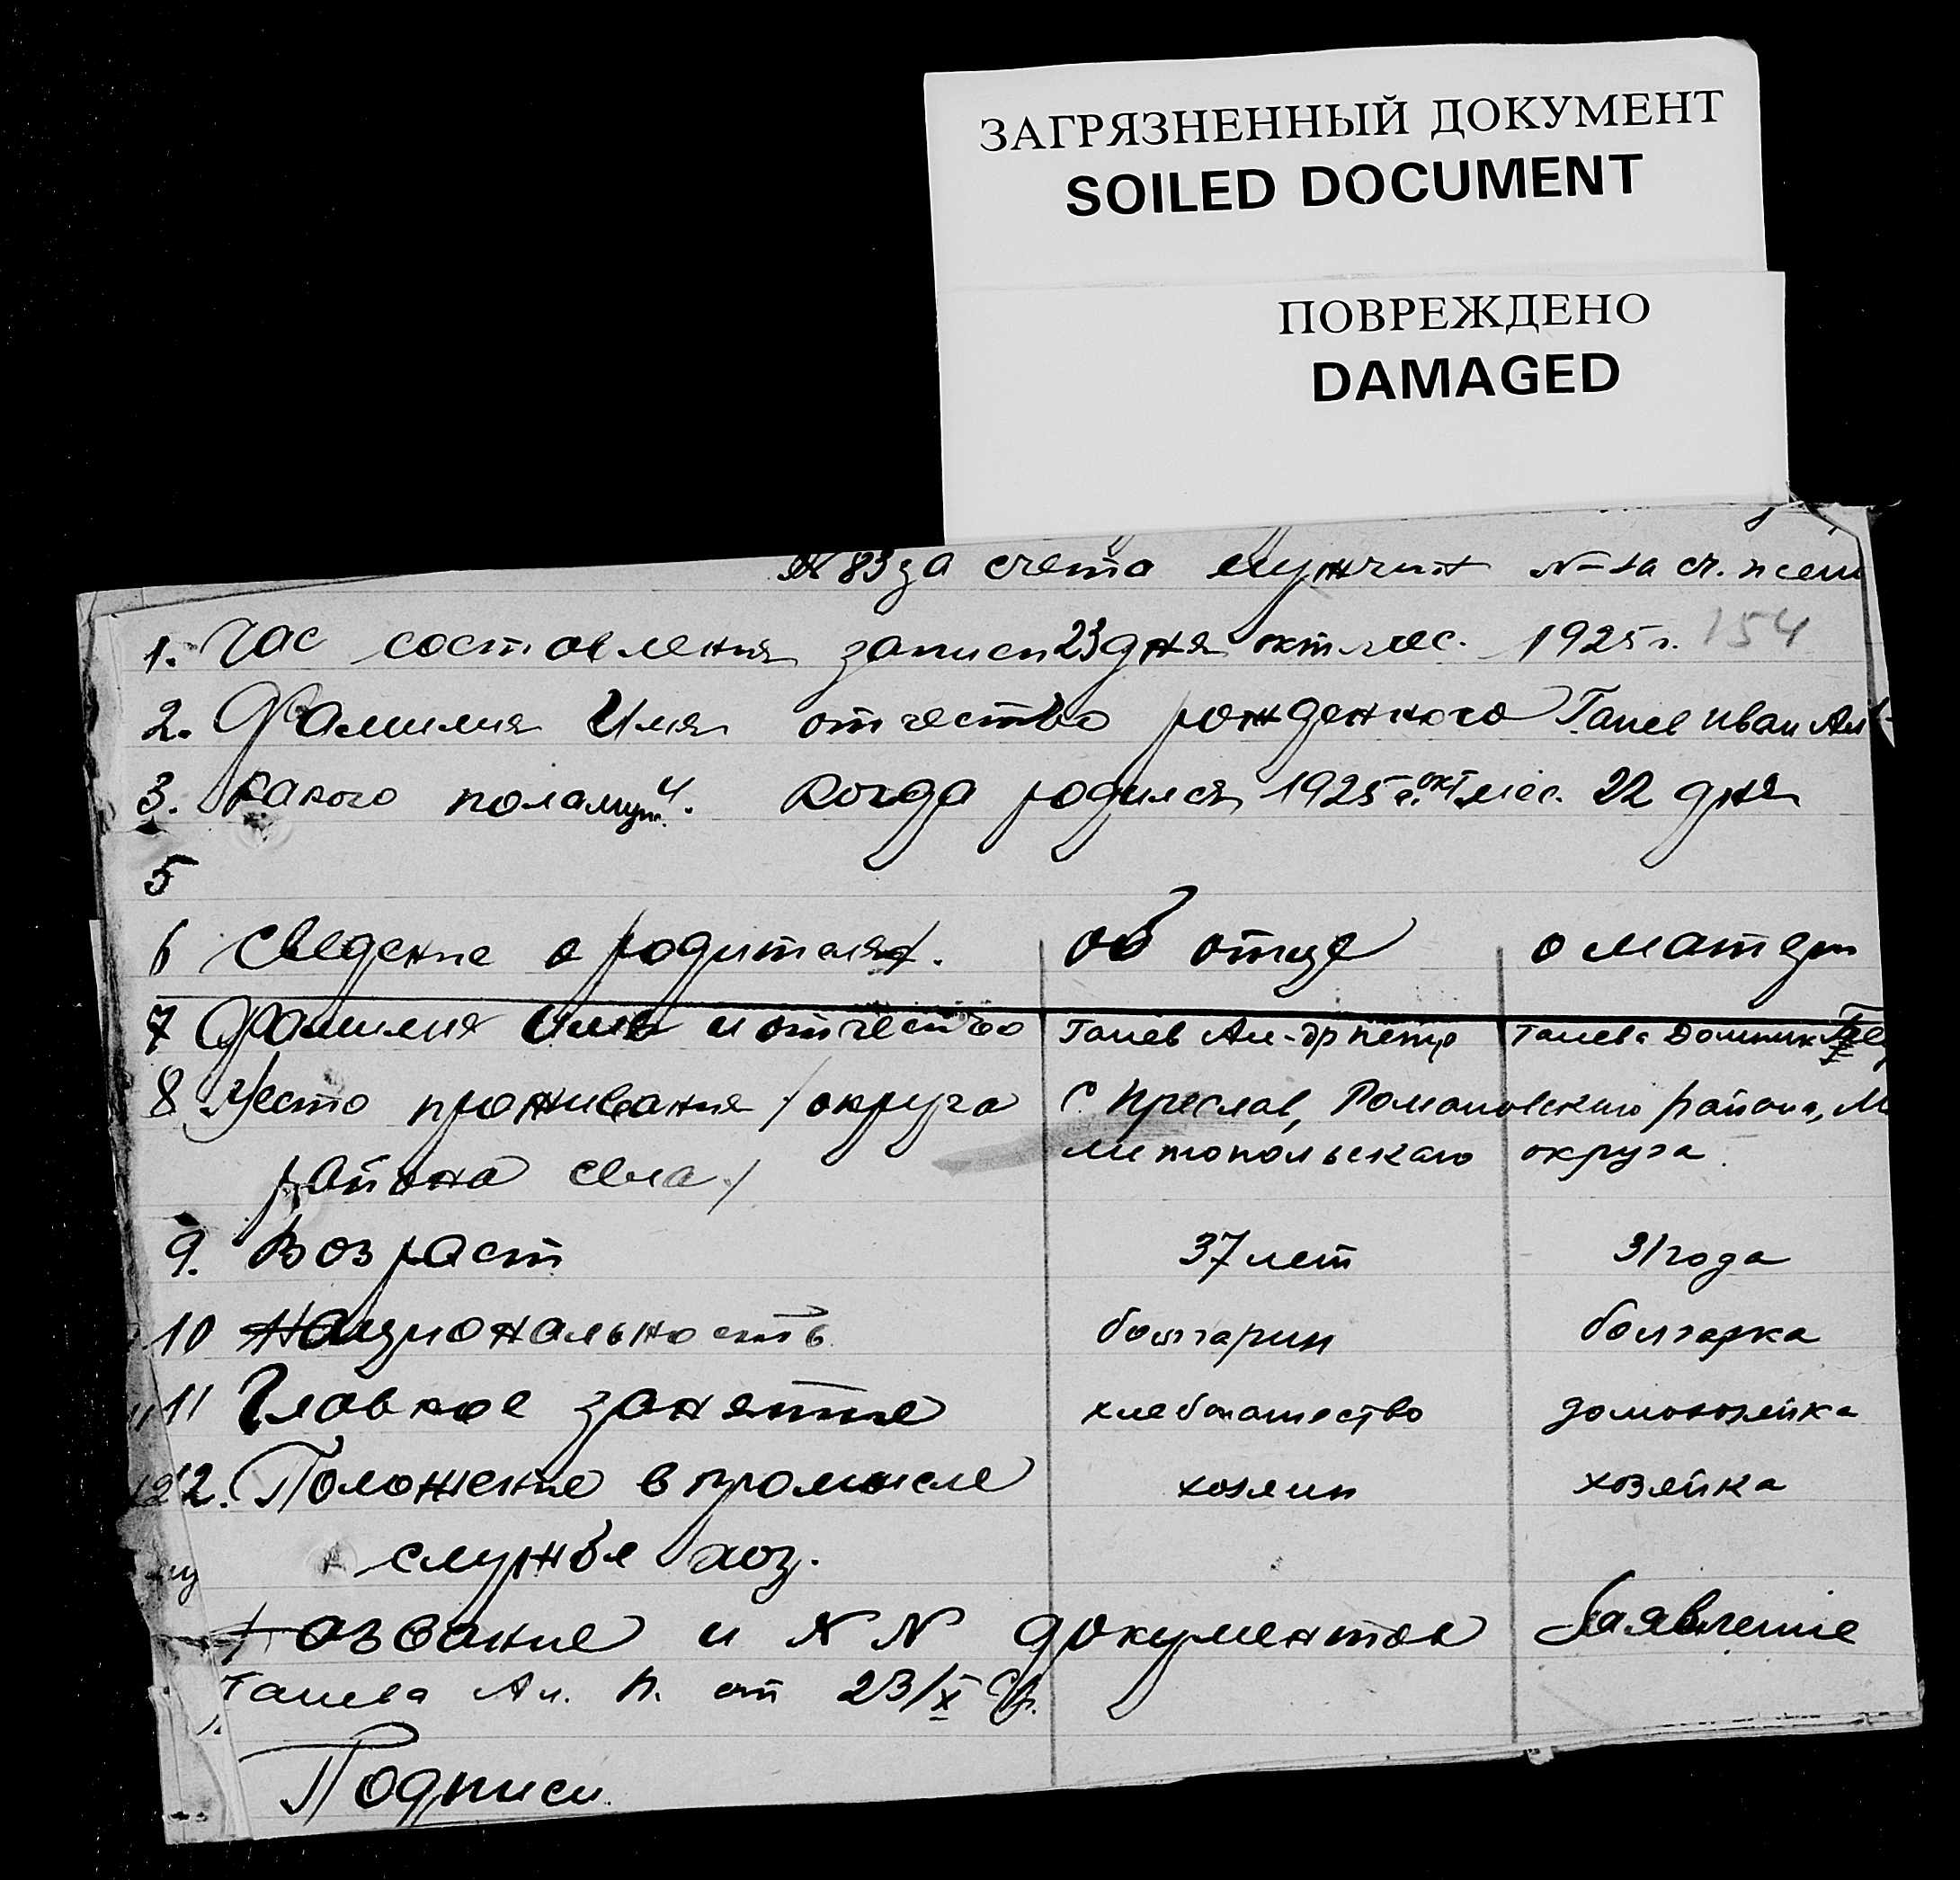 ЗАГРЯЗНЕННЫЙ ДОКУМЕНТ
SOILED DOCUMENT
ПОВРЕЖДЕНО
DAMAGED
№ 83 за счета мужчин № за сч. женщ
1. Час составления записи 23 дня окт мес. 1925 г. 154
2. Фамилия Имя отчество рожденного Ганев Иван Ал
3. Какого пола муж. 4. Когда родился 1925 г. окт мес. 22 дня
5
6 Сведение о родителях. об отце о матери
7 Фамилия Имя и отчество Ганев Ал-др Петр Ганева Домник
8 Место проживания / округа С. Преслав, Романовского района, М
района села / литопольского округа.
9. Возраст 37 лет 31 года
10 Национальность болгарин болгарка
11 Главное занятие хлебопашество домохозяйка
12. Положение в промысле хозяин хозяйка
службе хоз.
озвание и № № документов Заявление
Ганева Ал. П. от 23/X
Подписи